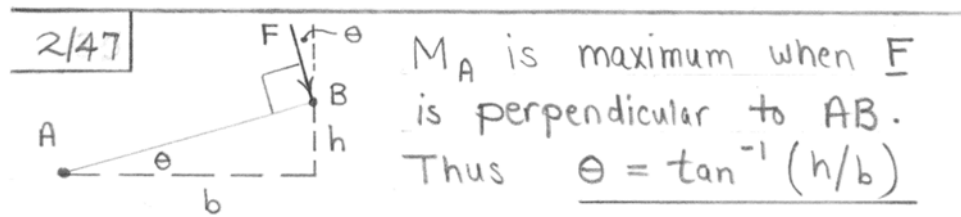 2/47
F
θ
B
A
θ
h
b
M_A is maximum when F
is perpendicular to AB.
Thus θ = tan⁻¹ (h/b)